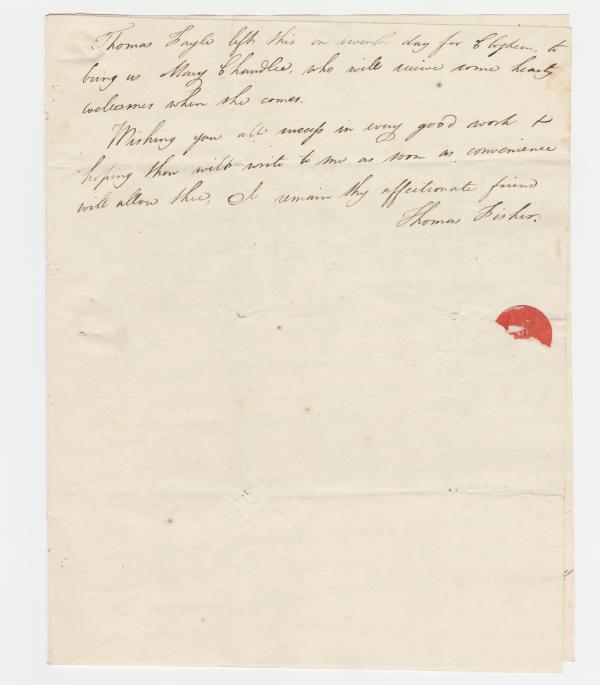 Thomas Fayle left this on seventh day for Clogheen, to
bring us Mary Chandlee, who will receive some hearty
welcomes when she comes.
Wishing you all success in every good work &
hoping thou wilt write to me as soon as convenience
will allow thee, I remain thy affectionate friend
Thomas Fisher.